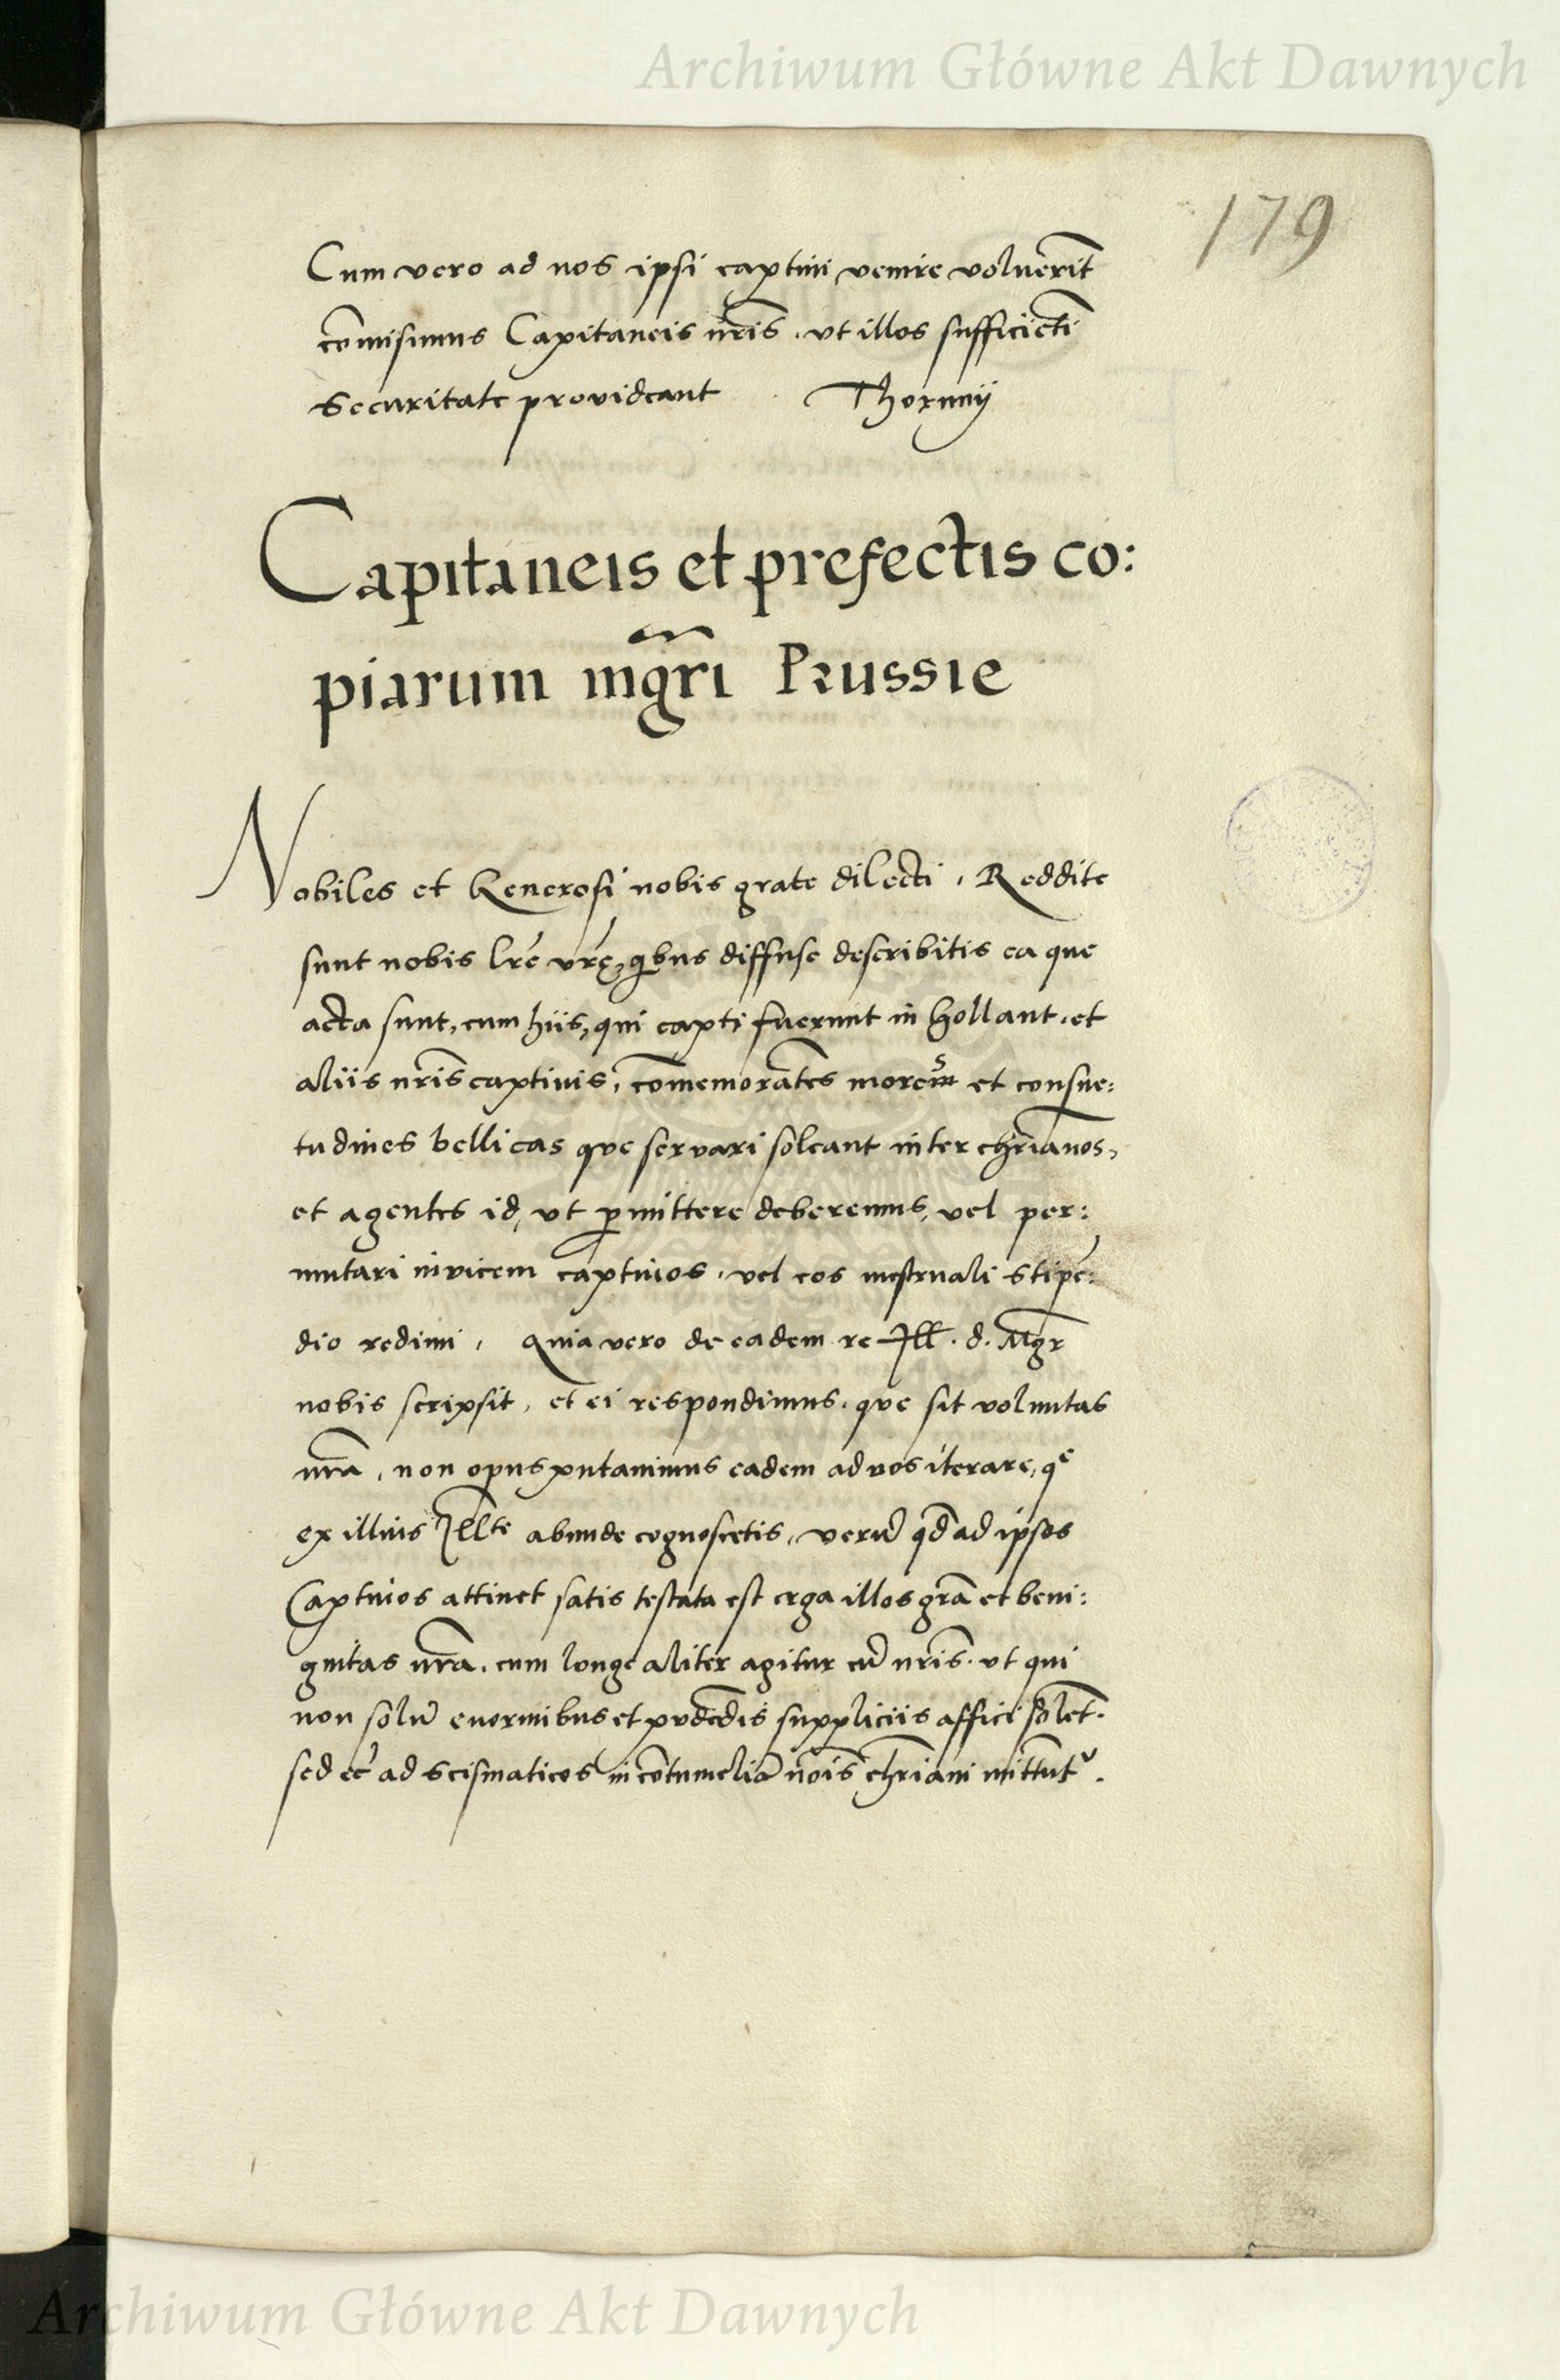 Archiwum Główne Akt Dawnych
179
Cum vero ad nos ipsi captivi venire voluerīt
cōmisimus Capitaneis nr̄is . ut illos sufficiētī
securitate provideant Thorunij
Capitaneis et prefectis co:
piarum mgr̄i Prussie
Nobiles et Generosi nobis grate dilecti , Reddite
sunt nobis lrē vrę̄, qbus diffuse describitis ea que
acta sunt, cum hiis, qui capti fuerunt in Hollant . et
aliis nr̄is captivis , cōmemorātes mores et consue:
tudines bellicas que servari soleant inter chr̄ianos,
et agentes id, ut ꝑmittere deberemus, vel per:
mutari invicem captivos . vel eos mestruali stipē:
dio redimi , Quia vero de eadem re Ill . d. Mgr̄
nobis scripsit , et ei respondimus . que sit voluntas
nr̄a , non opus putavimus eadem ad vos iterare, qͤ
ex illius Illᵗᵉ abunde cognoscetis , verū qd̄ ad ipsos
Captivos attinet satis testata est erga illos gr̄a et beni:
gnitas nr̄a . cum longe aliter agitur cū nr̄is . ut qui
non solū enormibus et pudēdis suppliciis affici solēt .
sed ec̄ ad scismaticos in cōtumeliā nōis chr̄iani mittūtʳ .
Archiwum Główne Akt Dawnych